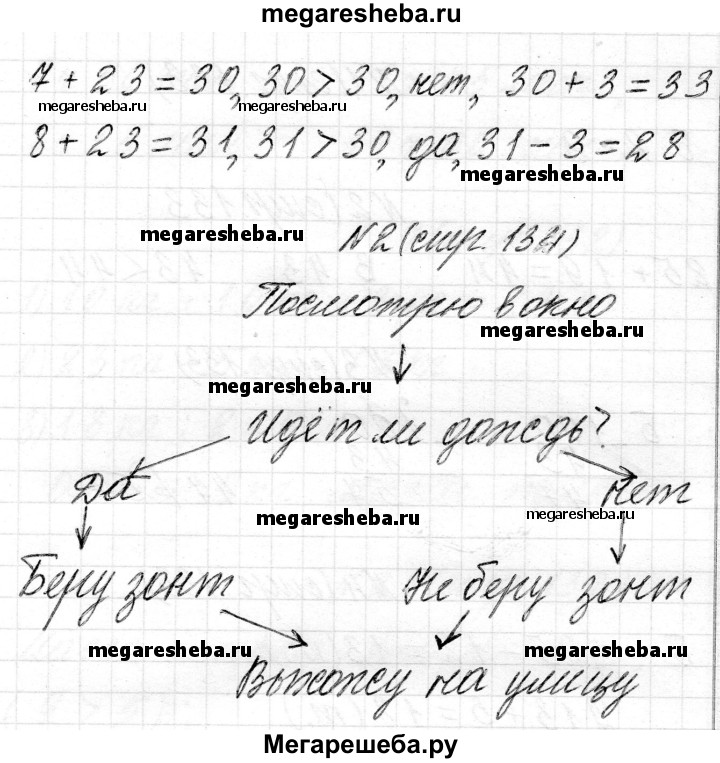 megaresheba.ru
7 + 23 = 30, 30 > 30, нет, 30 + 3 = 33
megaresheba.ru megaresheba.ru
8 + 23 = 31, 31 > 30, да, 31 - 3 = 28
megaresheba.ru
megaresheba.ru
N2 (стр. 134)
Посмотрю в окно
megaresheba.ru
megaresheba.ru
Идёт ли дождь?
Да нет
megaresheba.ru megaresheba.ru
Беру зонт Не беру зонт
megaresheba.ru megaresheba.ru
Выхожу на улицу
Мегарешеба.ру